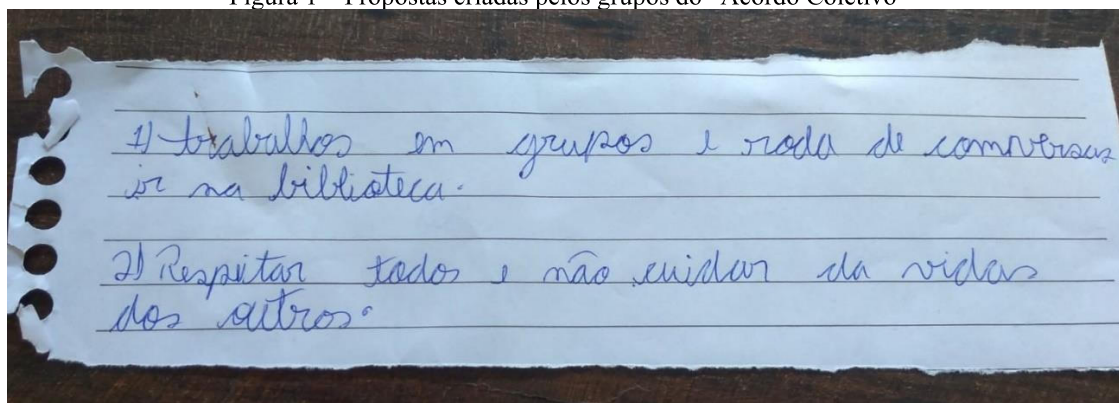 Figura 1 – Propostas criadas pelos grupos do "Acordo Coletivo"
1) trabalhos em grupos e roda de comversas
ir na biblioteca.
2) Respeitar todos e não cuidar da vidas
dos outros.